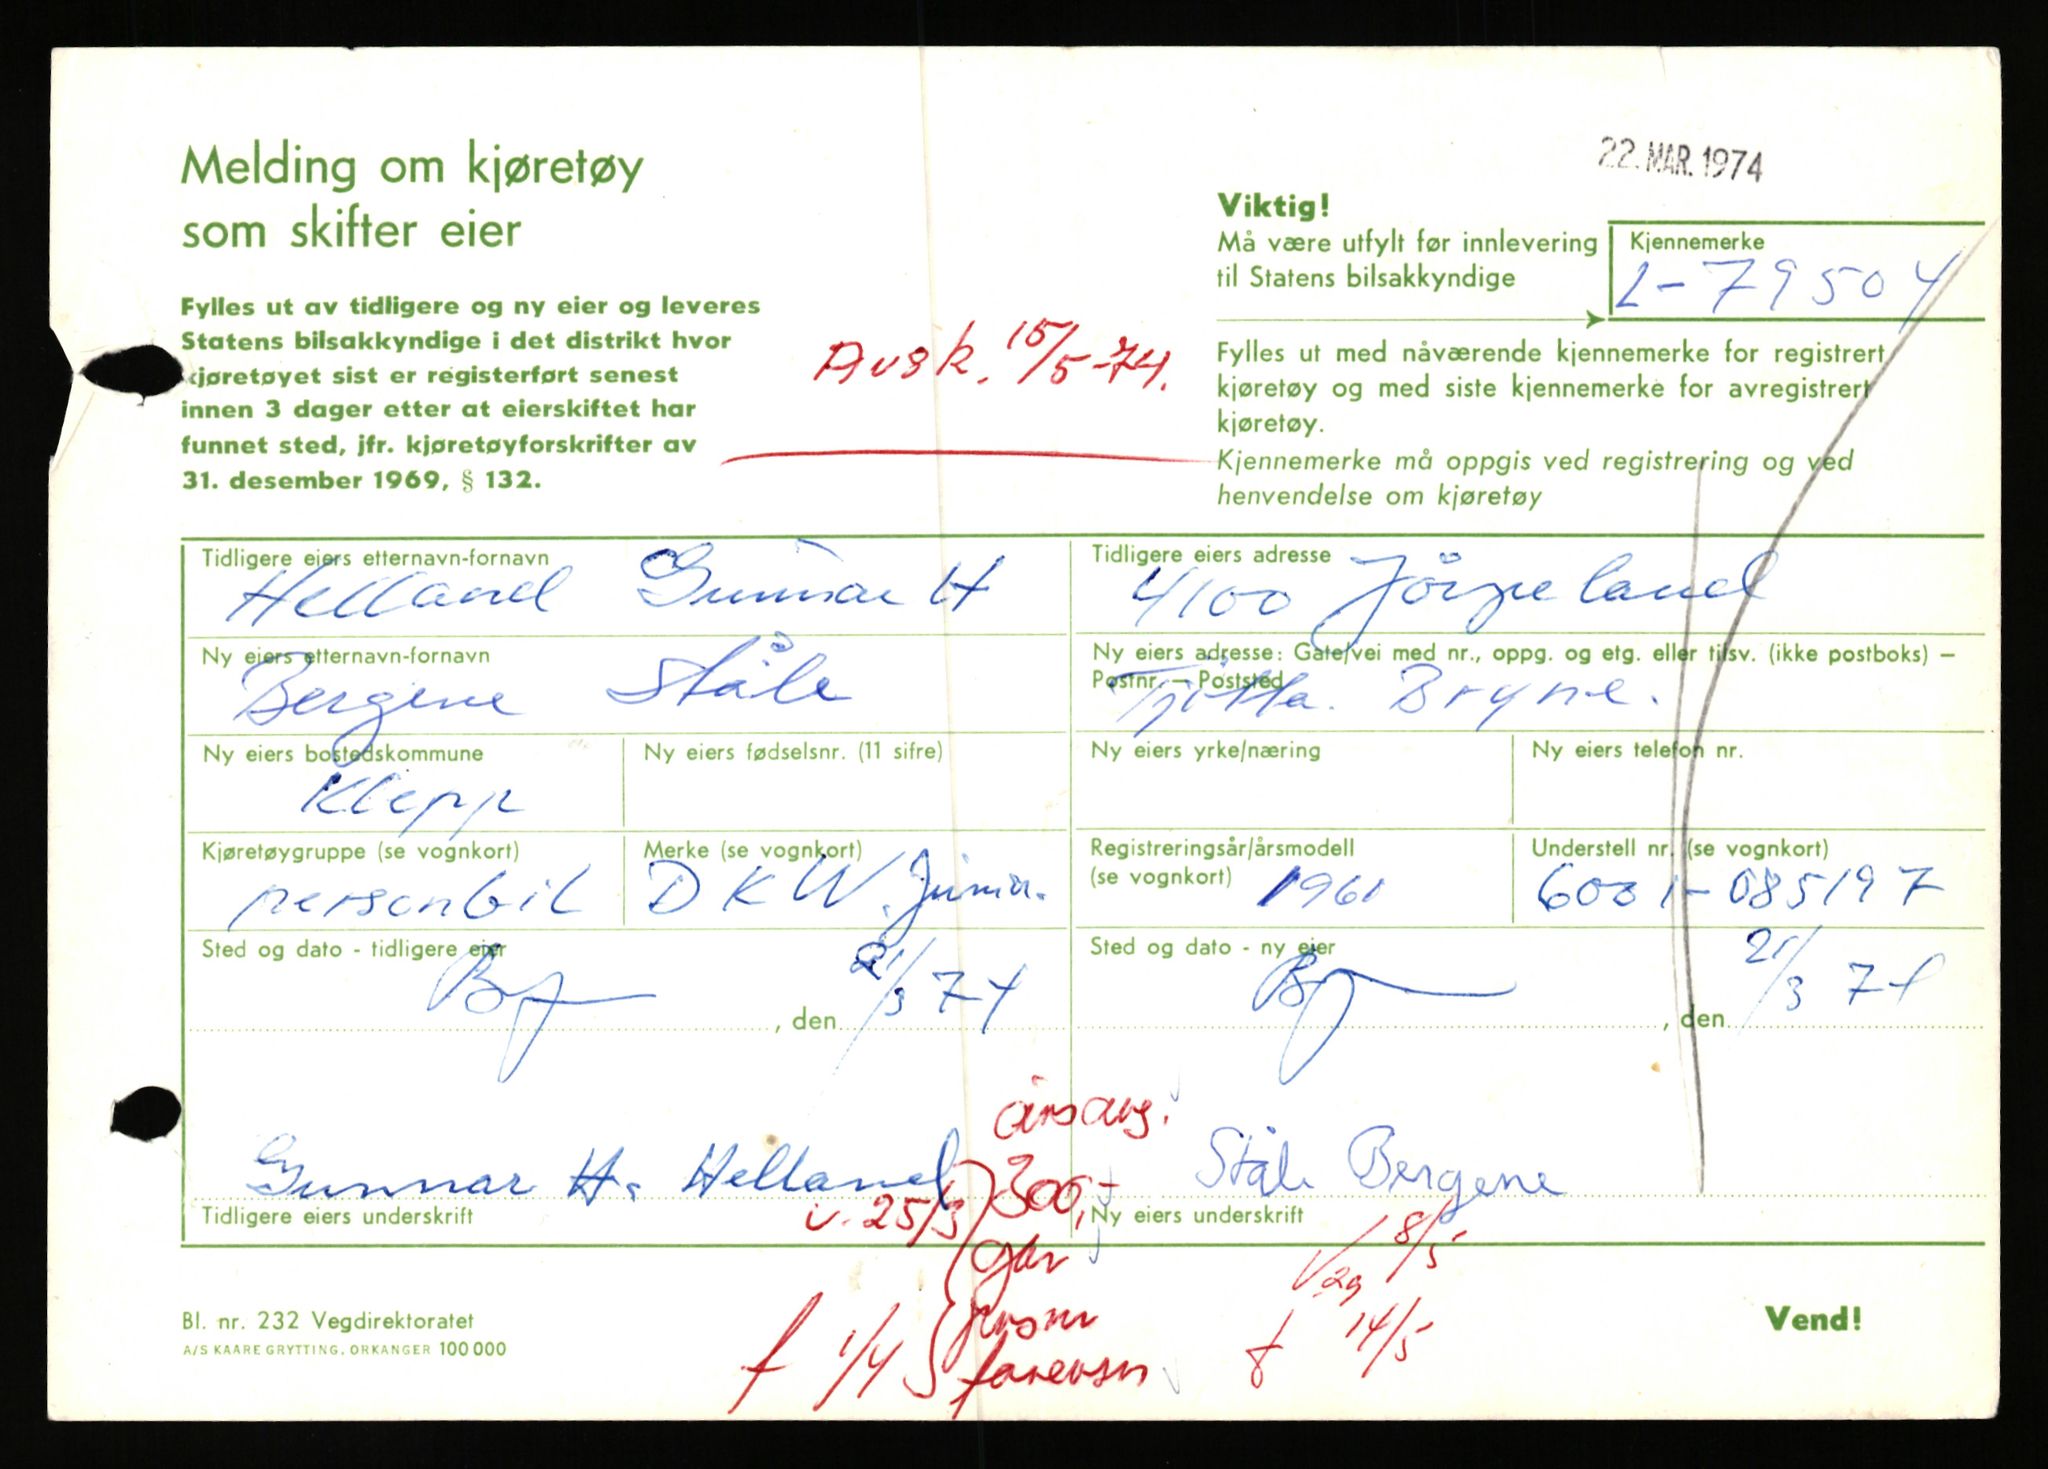 22. MAR. 1974
Melding om kjøretøy
som skifter eier
Fylles ut av tidligere og ny eier og leveres
Statens bilsakkyndige i det distrikt hvor
kjøretøyet sist er registerført senest
innen 3 dager etter at eierskiftet har
funnet sted, jfr. kjøretøyforskrifter av
31. desember 1969, § 132.
Avsk. 15/5-74.
Viktig!
Må være utfylt før innlevering
til Statens bilsakkyndige
Kjennemerke
L-79504
Fylles ut med nåværende kjennemerke for registrert
kjøretøy og med siste kjennemerke for avregistrert
kjøretøy.
Kjennemerke må oppgis ved registrering og ved
henvendelse om kjøretøy
Tidligere eiers etternavn-fornavn
Helland Gunnar H
Tidligere eiers adresse
4100 Jörpeland
Ny eiers etternavn-fornavn
Bergene Ståle
Ny eiers adresse: Gate/vei med nr., oppg. og etg. eller tilsv. (ikke postboks) –
Postnr. – Poststed
Tjötta. Bryne.
Ny eiers bostedskommune
Klepp
Ny eiers fødselsnr. (11 sifre)
Ny eiers yrke/næring
Ny eiers telefon nr.
Kjøretøygruppe (se vognkort)
personbil
Merke (se vognkort)
DKW. Junior.
Registreringsår/årsmodell
(se vognkort)
1961
Understell nr. (se vognkort)
6001-085197
Sted og dato - tidligere eier
, den 21/3 74
Sted og dato - ny eier
, den 21/3 74
årsavg.
300,-
Gunnar H. Helland
Ståle Bergene
Tidligere eiers underskrift
v. 25/3
Ny eiers underskrift
V 8/5
14/5
f 1/4
Bl. nr. 232 Vegdirektoratet
A/S KAARE GRYTTING, ORKANGER 100 000
Vend!